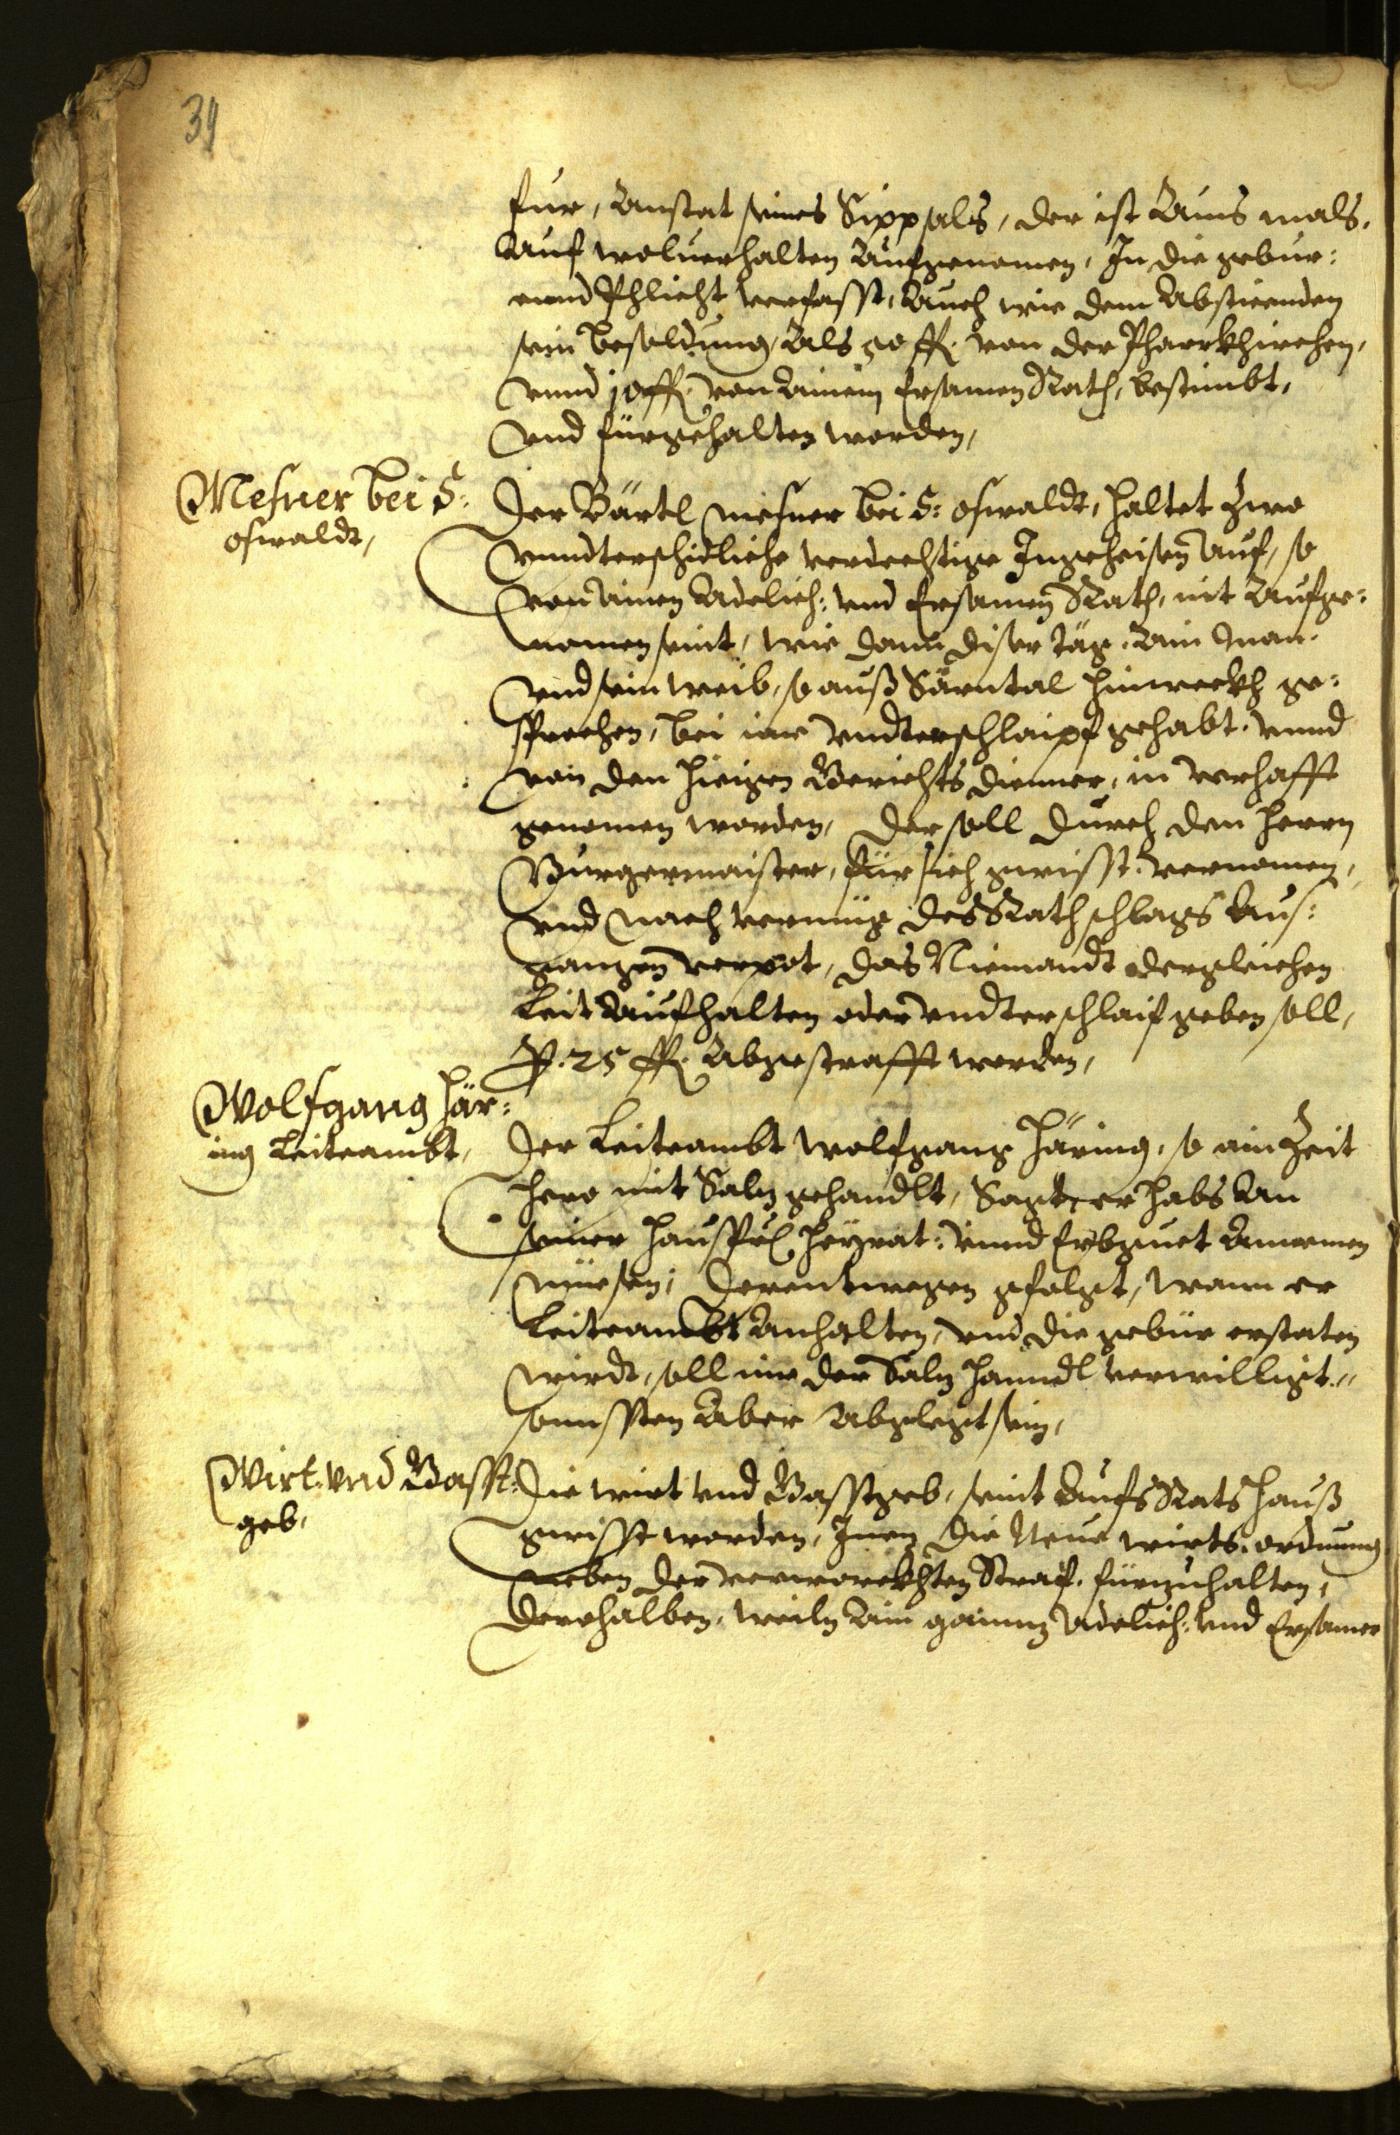 39
fur, Anstat seines Sippsals, der ist Auns mals,
Auf wolverhalten Aufgenomen, In die gebur:
ennd Phlicht verfasst, Auch wie dem Abstienden
sein besoldung, Als 50 ff. von der Pharrkhirchen,
vnnd 10 ff. von Ainem Ersamen Rath, bestimbt,
vnd fürgehalten worden,
Mesner bei S:
oswaldt,
Der Bärtl mesner bei S: oswaldt, haltet Zwo
vnndterschidliche verdechtige Ingeheisen auf, so
von ainem Adelich: vnd Ersamen Rath, nit Aufge:
nomen seint, wie dann diser täg, Ain Man,
vnd sein weib, so auß Särntal hinweckh ge:
sprochen, bei ime vndterschlaipf gehabt, vnnd
von den hieigen Gerichts diennern, in verhafft
genomen worden, Der soll durch den herrn
Burgermaister, für sich gwisst, vernomen,
vnd nach vermüg des Rathschlags Aus:
gangen verpot, das Niemandt dergleichen
Leit Aufhalten oder vndterschlaif geben soll,
P. 25 ff. Abgestrafft werden,
Wolfgang Här:
ing Leiteambt,
Der Leiteambt wolfgang Häring, so ain Zeit
hero mit Salz gehandlt, Sagt er habs An
seiner Hausfr. Heyrat: vnnd Erbguet Annemen
müesen, Derentwegen gfolgt, wann er
Leiteambt Anhalten, vnd die gebür erstaten
wirdt, soll ime der Salz hanndl verwilligt,
sonnsten Aber Abglegt sein,
Wirt: vnd Gasst:
geb,
Die wirt vnd Gasstgeb, seint Aufs Rats Hauß
gwisst worden, Inen die Neue wirts ordnung
neben der verworckhten Straf, fürzuhalten,
Derohalben, weiln Ain gannz Adelich: vnd Ersamer